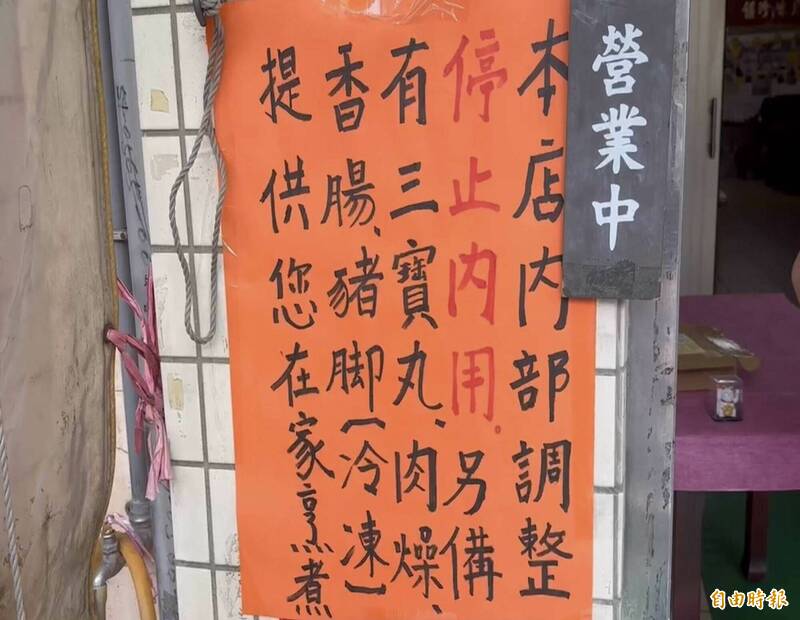 本店內部調整
停止內用。另備
有三寶丸、肉燥、
香腸、豬脚(冷凍)
提供您在家烹煮
營業中
自由時報